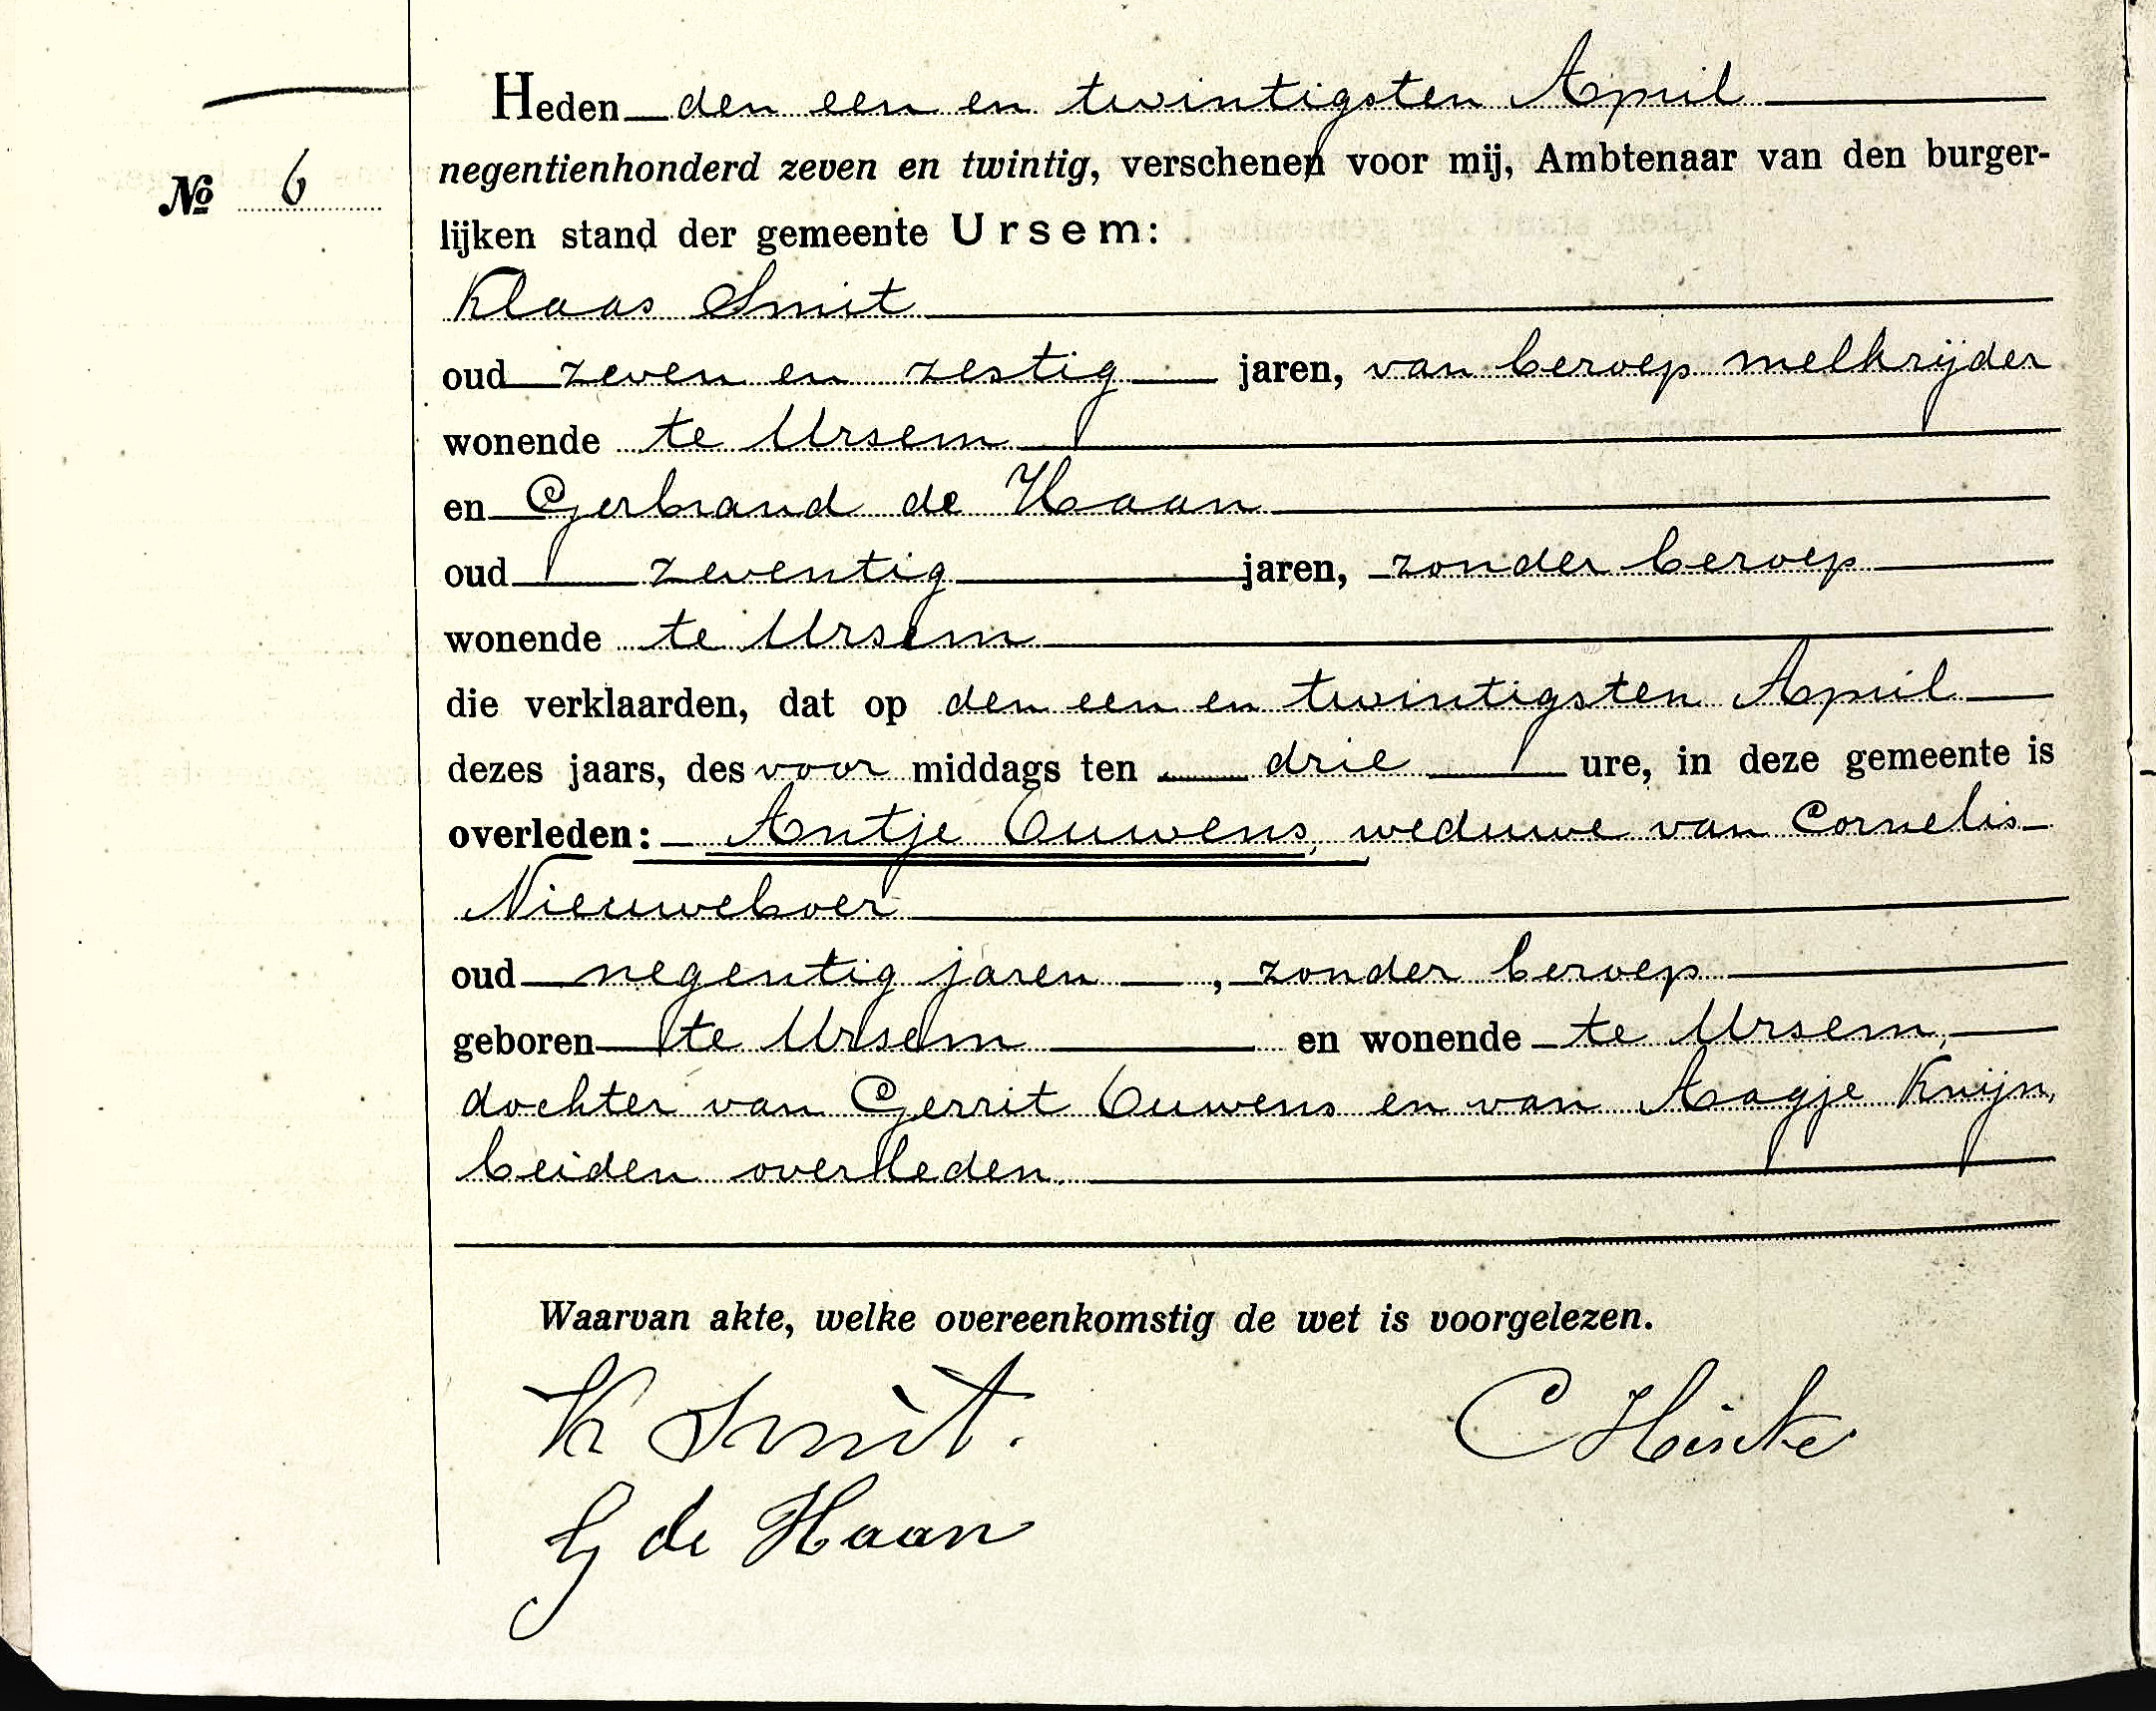 Heden den een en twintigsten April
negentienhonderd zeven en twintig, verschenen voor mij, Ambtenaar van den burger-
No 6
lijken stand der gemeente Ursem:
Klaas Smit
oud zeven en zestig jaren, van beroep melkrijder
wonende te Ursem
en Gerbrand de Haan
oud zeventig jaren, zonder beroep
wonende te Ursem
die verklaarden, dat op den een en twintigsten April
dezes jaars, des voor middags ten drie ure, in deze gemeente is
overleden: Antje Ouwens, weduwe van Cornelis
Nieuweboer
oud negentig jaren, zonder beroep
geboren te Ursem en wonende te Ursem,
dochter van Gerrit Ouwens en van Aagje Knijn,
beiden overleden.
Waarvan akte, welke overeenkomstig de wet is voorgelezen.
K Smit.
C
G de Haan